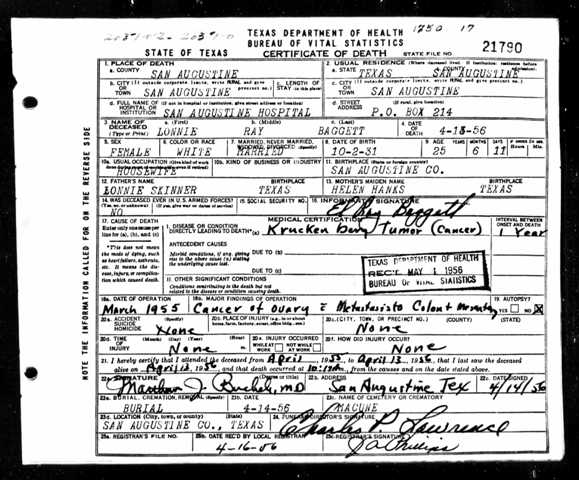 TEXAS DEPARTMENT OF HEALTH
BUREAU OF VITAL STATISTICS
1250 17
STATE OF TEXAS CERTIFICATE OF DEATH STATE FILE NO. 21790
1. PLACE OF DEATH
a. COUNTY SAN AUGUSTINE
2. USUAL RESIDENCE (Where deceased lived. If institution: residence before
a. STATE TEXAS b. COUNTY SAN AUGUSTINE
b. CITY OR TOWN SAN AUGUSTINE
c. LENGTH OF STAY (in this place)
c. CITY OR TOWN SAN AUGUSTINE
d. FULL NAME OF HOSPITAL OR INSTITUTION SAN AUGUSTINE HOSPITAL
d. STREET ADDRESS P.O. BOX 214
3. NAME OF DECEASED (Type or Print)
a. (First) LONNIE
b. (Middle) RAY
c. (Last) BAGGETT
4. DATE OF DEATH 4-13-56
5. SEX FEMALE
6. COLOR OR RACE WHITE
7. MARRIED, NEVER MARRIED, WIDOWED, DIVORCED (Specify) MARRIED
8. DATE OF BIRTH 10-2-31
9. AGE 25 6 11
10a. USUAL OCCUPATION HOUSEWIFE
10b. KIND OF BUSINESS OR INDUSTRY
11. BIRTHPLACE (State or foreign country) SAN AUGUSTINE CO.
12. FATHER'S NAME BIRTHPLACE
LONNIE SKINNER TEXAS
13. MOTHER'S MAIDEN NAME BIRTHPLACE
HELEN HANKS TEXAS
14. WAS DECEASED EVER IN U.S. ARMED FORCES? NO
15. SOCIAL SECURITY NO.
16. INFORMANT'S SIGNATURE
Ray Baggett
17. CAUSE OF DEATH
Enter only one cause per line for (a), (b), and (c)
MEDICAL CERTIFICATION
INTERVAL BETWEEN ONSET AND DEATH
I. DISEASE OR CONDITION DIRECTLY LEADING TO DEATH* (a) Krucken berg Tumor (Cancer) 1 Year
*This does not mean the mode of dying, such as heart failure, asthenia, etc. It means the disease, injury, or complication which caused death.
ANTECEDENT CAUSES
Morbid conditions, if any, giving rise to the above cause (a) stating the underlying cause last.
DUE TO (b)
DUE TO (c)
II. OTHER SIGNIFICANT CONDITIONS
Conditions contributing to the death but not related to the disease or condition causing death.
TEXAS DEPARTMENT OF HEALTH
REC'D MAY 1 1956
BUREAU OF VITAL STATISTICS
18a. DATE OF OPERATION March 1955
18b. MAJOR FINDINGS OF OPERATION Cancer of Ovary Metastasis to Colon +
19. AUTOPSY? YES NO
20a. ACCIDENT SUICIDE HOMICIDE None
20b. PLACE OF INJURY
20c. (CITY, TOWN, OR PRECINCT NO.) (COUNTY) (STATE)
None
20d. TIME OF INJURY None
20e. INJURY OCCURRED WHILE AT WORK NOT WHILE AT WORK
20f. HOW DID INJURY OCCUR? None
21. I hereby certify that I attended the deceased from April, 1955, to April 13, 1956, that I last saw the deceased
alive on April 13, 1956, and that death occurred at from the causes and on the date stated above.
22a. SIGNATURE (Degree or title) 22b. ADDRESS 22c. DATE SIGNED
MD San Augustine Tex 4/14/56
23a. BURIAL, CREMATION, REMOVAL (Specify) BURIAL
23b. DATE 4-14-56
23c. NAME OF CEMETERY OR CREMATORY MACUNE
23d. LOCATION (City, town, or county) (State)
SAN AUGUSTINE CO., TEXAS
24. FUNERAL DIRECTOR'S SIGNATURE
Charles P. Lawrence
25a. REGISTRAR'S FILE NO.
25b. DATE REC'D BY LOCAL REGISTRAR 4-16-56
25c. REGISTRAR'S SIGNATURE
Phillips
NOTE THE INFORMATION CALLED FOR ON THE REVERSE SIDE